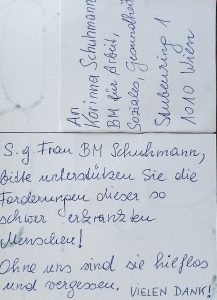 An
Korinna Schuhmann
BM für Arbeit,
Soziales, Gesundheit
Stubenring 1
1010 Wien
S. g. Frau BM Schuhmann,
Bitte unterstützen Sie die
Forderungen dieser so
schwer erkrankten
Menschen!
Ohne uns sind sie hilflos
und vergessen. VIELEN DANK!